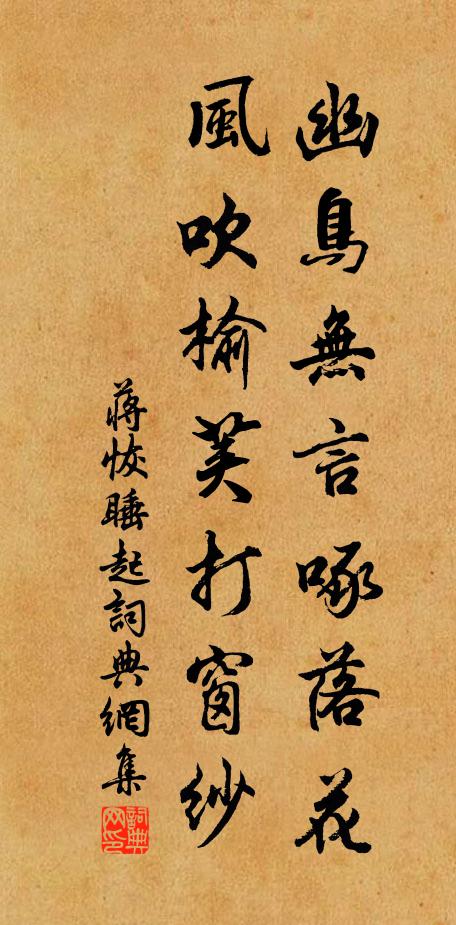 幽鳥無言啄落花
風吹榆荚打窗紗
蔣恢睡起詞典網集
詞典网印